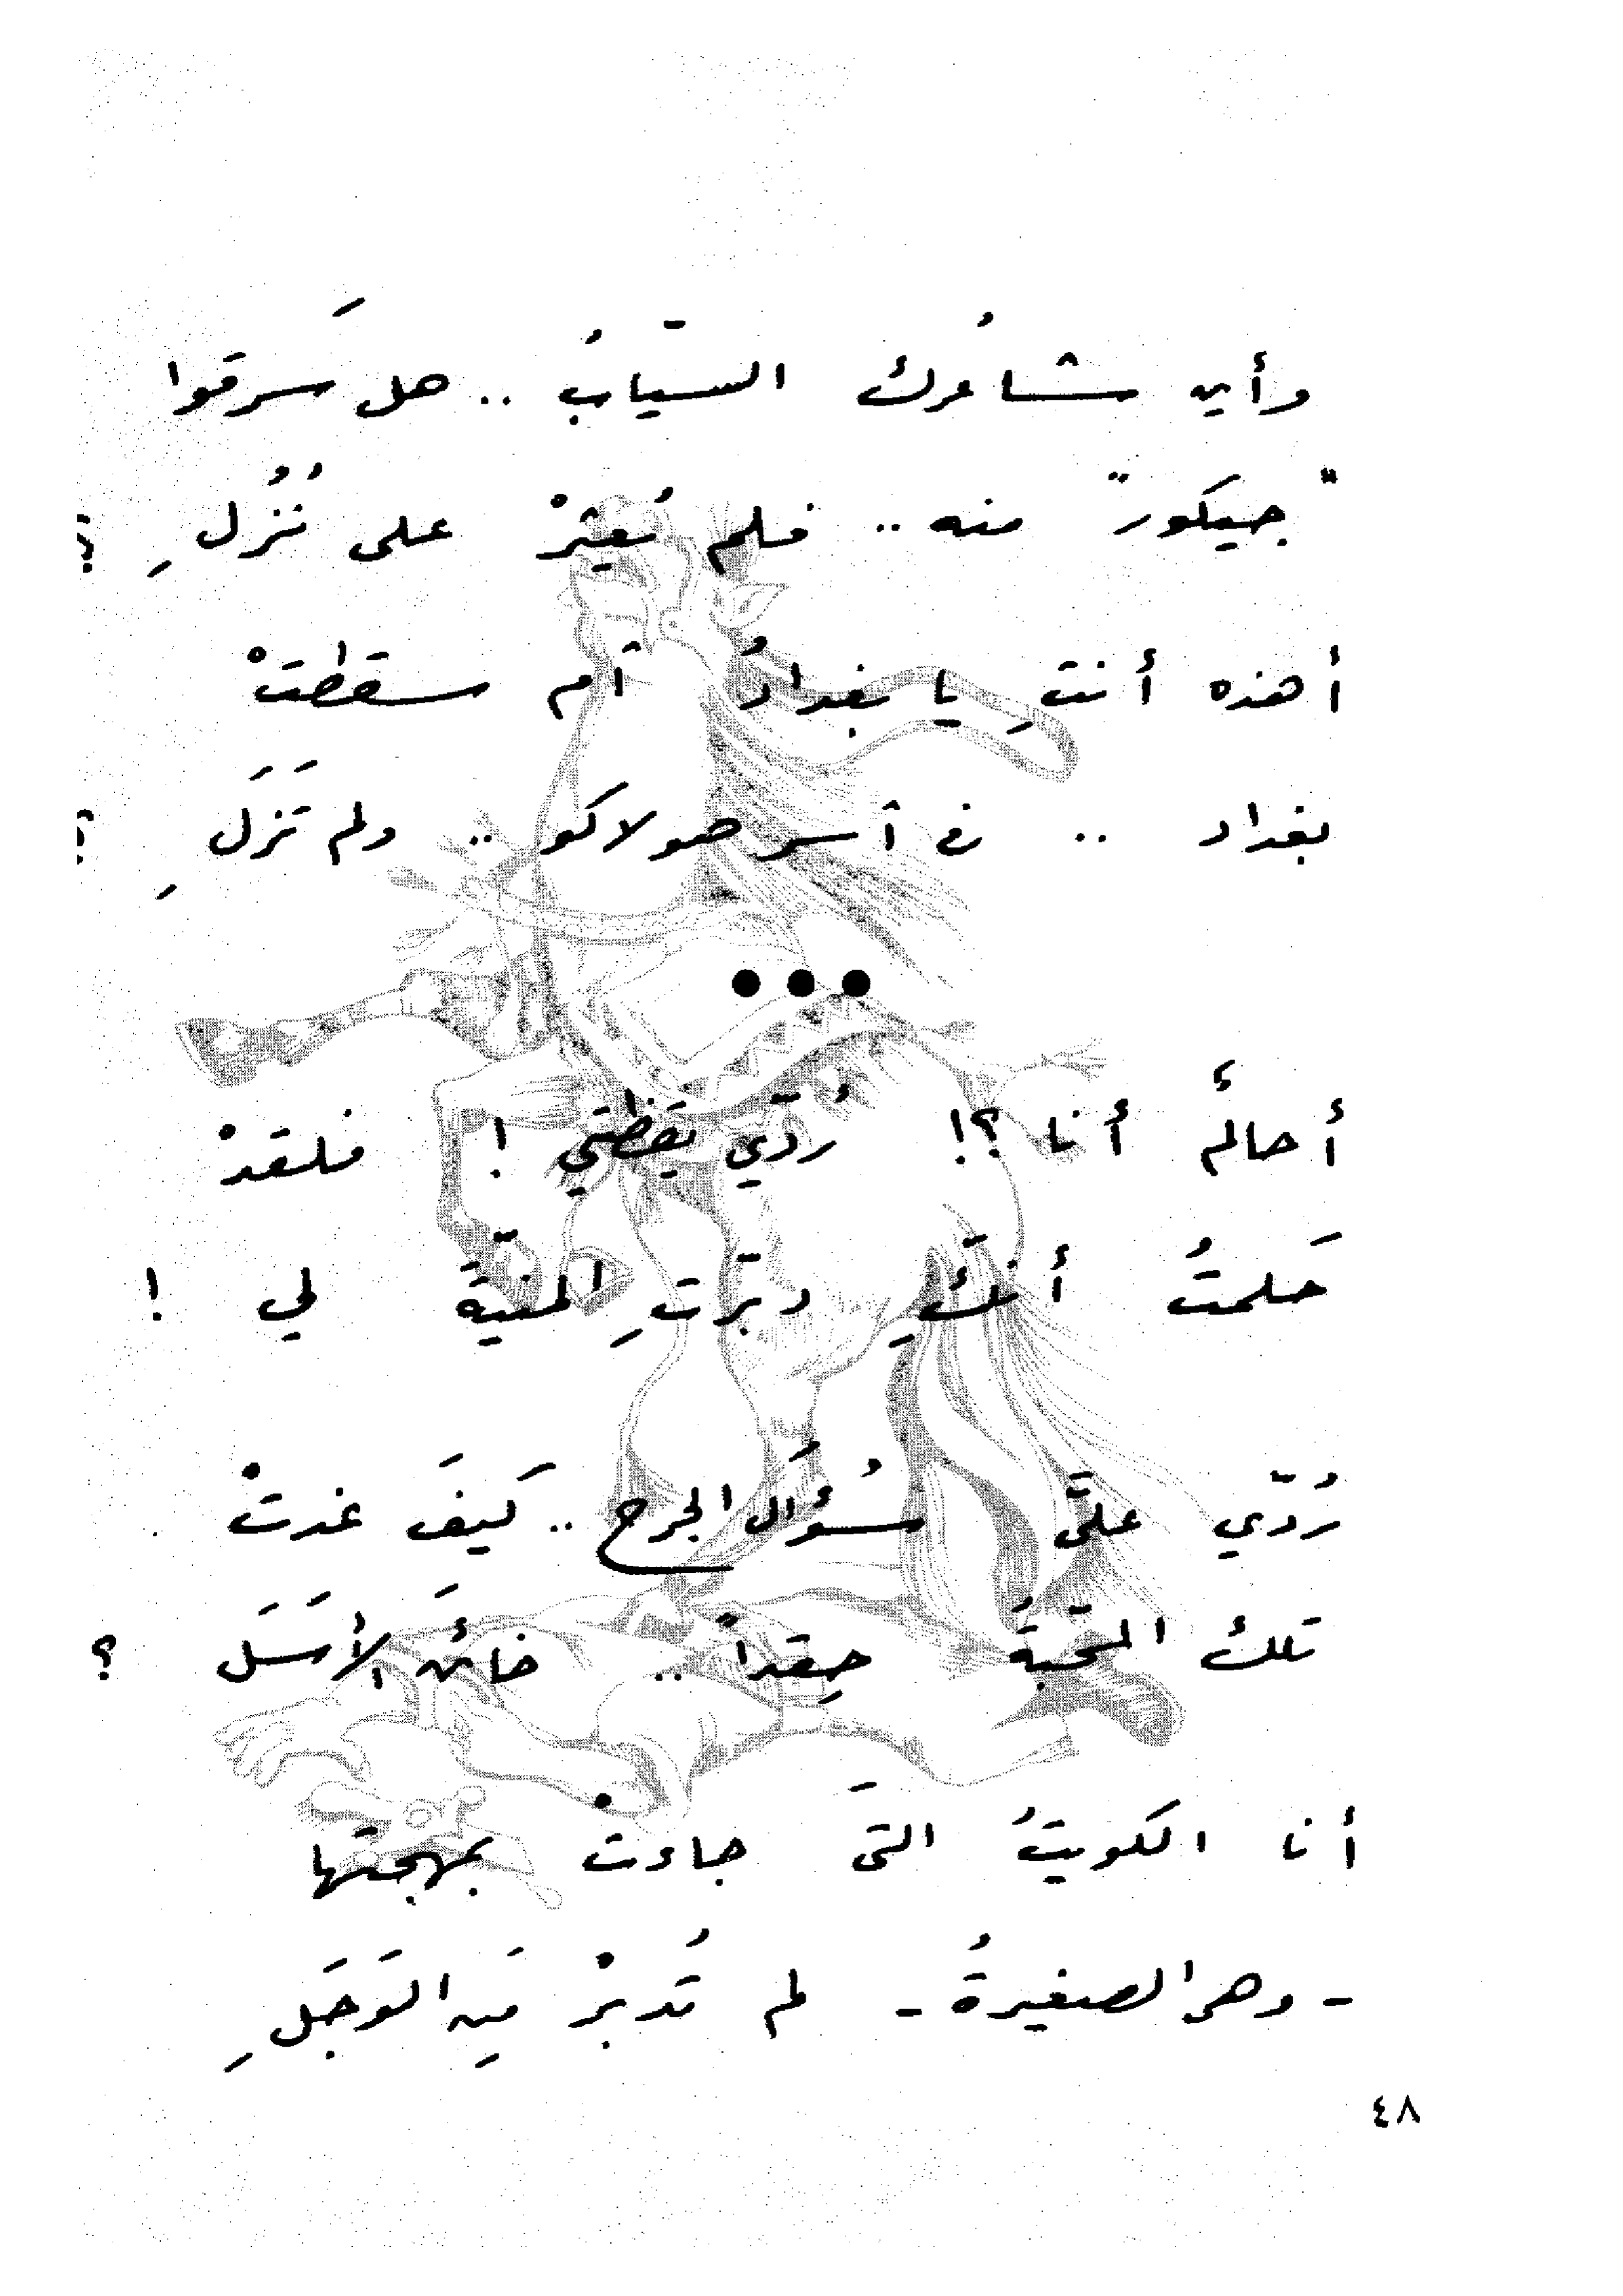 وأين شاعرُك السيّابُ .. هل سَرقوا
"جيكور" منه .. فلم يُعثرْ على نُزُلِ ؟
أهذه أنتِ يا بغدادُ أم سقطتْ
بغداد .. في أسر هولاكو .. ولم تَزَلِ ؟
•••
أحالمٌ أنا ؟! رُدّي يقظتي ! فلقدْ
حَلمتُ أنكِ دبّرتِ المنيّةَ لي !
رُدّي عليّ سُؤال الجرح .. كَيفَ غدتْ
تلك المحبّةُ حِقداً .. خائنَ الأَسَل ؟
أنا الكويتُ التي جاءتْ بمهجتها
- وهي الصغيرةُ - لم تُدبرْ مِن الوَجَلِ
٤٨